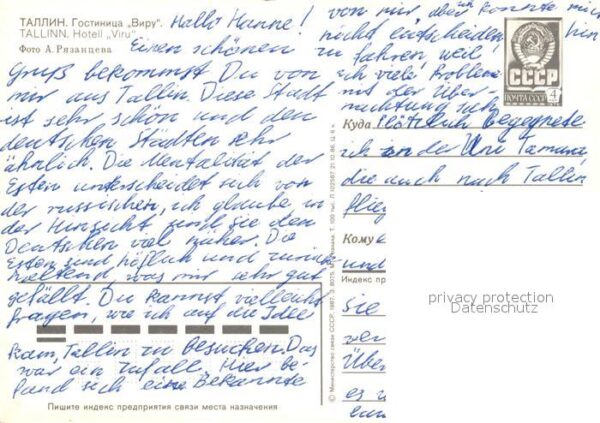 ТАЛЛИН. Гостиница „Виру".
TALLINN. Hotell „Viru"
Фото А. Рязанцева
Hallo Hanne!
Einen schönen
Gruß bekommst Du von
mir aus Tallin. Diese Stadt
ist sehr schön und den
deutschen Städten sehr
ähnlich. Die Mentalität der
Esten unterscheidet sich von
der russischen, ich glaube in
der Hinsicht sind sie den
Deutschen viel näher. Die
Esten sind höflich und zurück
haltend, was mir sehr gut
gefällt. Du kannst vielleicht
fragen, wie ich auf die Idee
kam, Tallin zu besuchen. Das
war ein Zufall. Hier be-
fand sich eine Bekannte
Пишите индекс предприятия связи места назначения
von mir, aber ich konnte mich
nicht entscheiden hin
zu fahren, weil
ich viele Probleme
mit der Über-
nachtung habe
СССР
ПОЧТА СССР
4
Куда Plötzlich begegnete
ich an der Uni Tamara
die auch nach Tallin
flieg
Кому
und
Sie
ver
Über
es u
privacy protection
Datenschutz
© Министерство связи СССР. 1987.